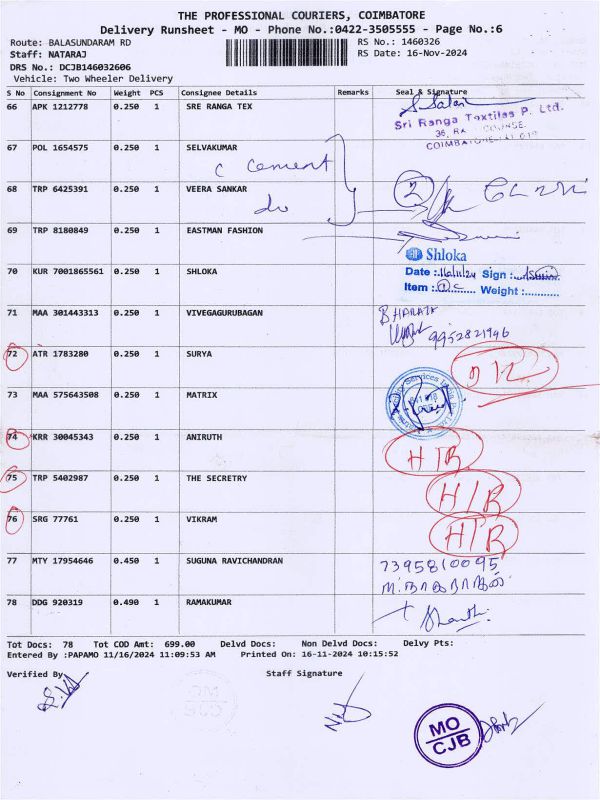 THE PROFESSIONAL COURIERS, COIMBATORE
Delivery Runsheet - MO - Phone No.:0422-3505555 - Page No.:6
Route: BALASUNDARAM RD RS No.: 1460326
Staff: NATARAJ RS Date: 16-Nov-2024
DRS No.: DCJB146032606
Vehicle: Two Wheeler Delivery
S No Consignment No Weight PCS Consignee Details Remarks Seal & Signature
66 APK 1212778 0.250 1 SRE RANGA TEX
Sri Ranga Textiles P. Ltd.
67 POL 1654575 0.250 1 SELVAKUMAR
C Cement
68 TRP 6425391 0.250 1 VEERA SANKAR 2
do
69 TRP 8180849 0.250 1 EASTMAN FASHION
Shloka
70 KUR 7001865561 0.250 1 SHLOKA Date : 16/11/24 Sign :
Item : Weight :
71 MAA 301443313 0.250 1 VIVEGAGURUBAGAN BHARATH
9952821946
72 ATR 1783280 0.250 1 SURYA
73 MAA 575643508 0.250 1 MATRIX
74 KRR 30045343 0.250 1 ANIRUTH H/R
75 TRP 5402987 0.250 1 THE SECRETRY H/R
76 SRG 77761 0.250 1 VIKRAM H/R
77 MTY 17954646 0.450 1 SUGUNA RAVICHANDRAN 7395810095
78 DDG 920319 0.490 1 RAMAKUMAR
Tot Docs: 78 Tot COD Amt: 699.00 Delvd Docs: Non Delvd Docs: Delvy Pts:
Entered By :PAPAMO 11/16/2024 11:09:53 AM Printed On: 16-11-2024 10:15:52
Verified By Staff Signature
MO
CJB